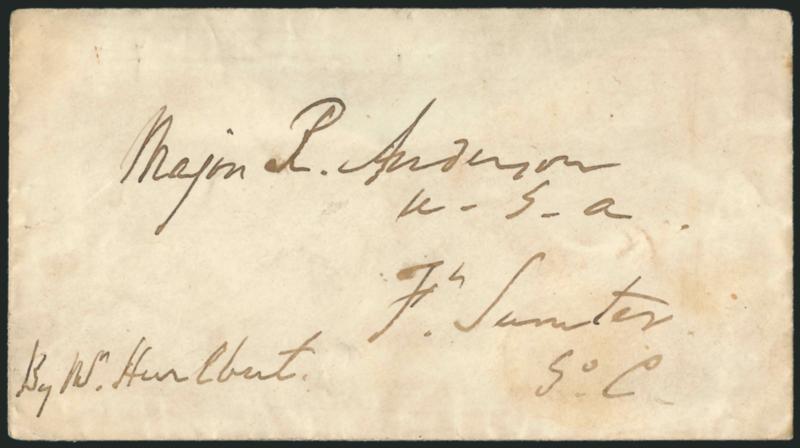 Major R. Anderson
U - S - A.
Ft. Sumter
So. Ca.
By Mr. Hurlbut.